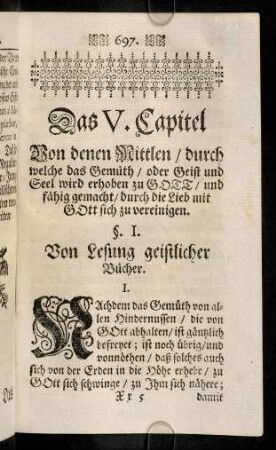 697.
Das V. Capitel
Von denen Mittlen / durch
welche das Gemüth / oder Geist und
Seel wird erhoben zu GOTT / und
fähig gemacht / durch die Lieb mit
GOtt sich zu vereinigen.
§. I.
Von Lesung geistlicher
Bücher.
I.
NAchdem das Gemüth von al-
len Hindernussen / die von
GOtt abhalten / ist gäntzlich
befreyet; ist noch übrig / und
vonnöthen / daß solches auch
sich von der Erden in die Höhe erhebe / zu
GOtt sich schwinge / zu Ihm sich nähere;
Xx 5 damit